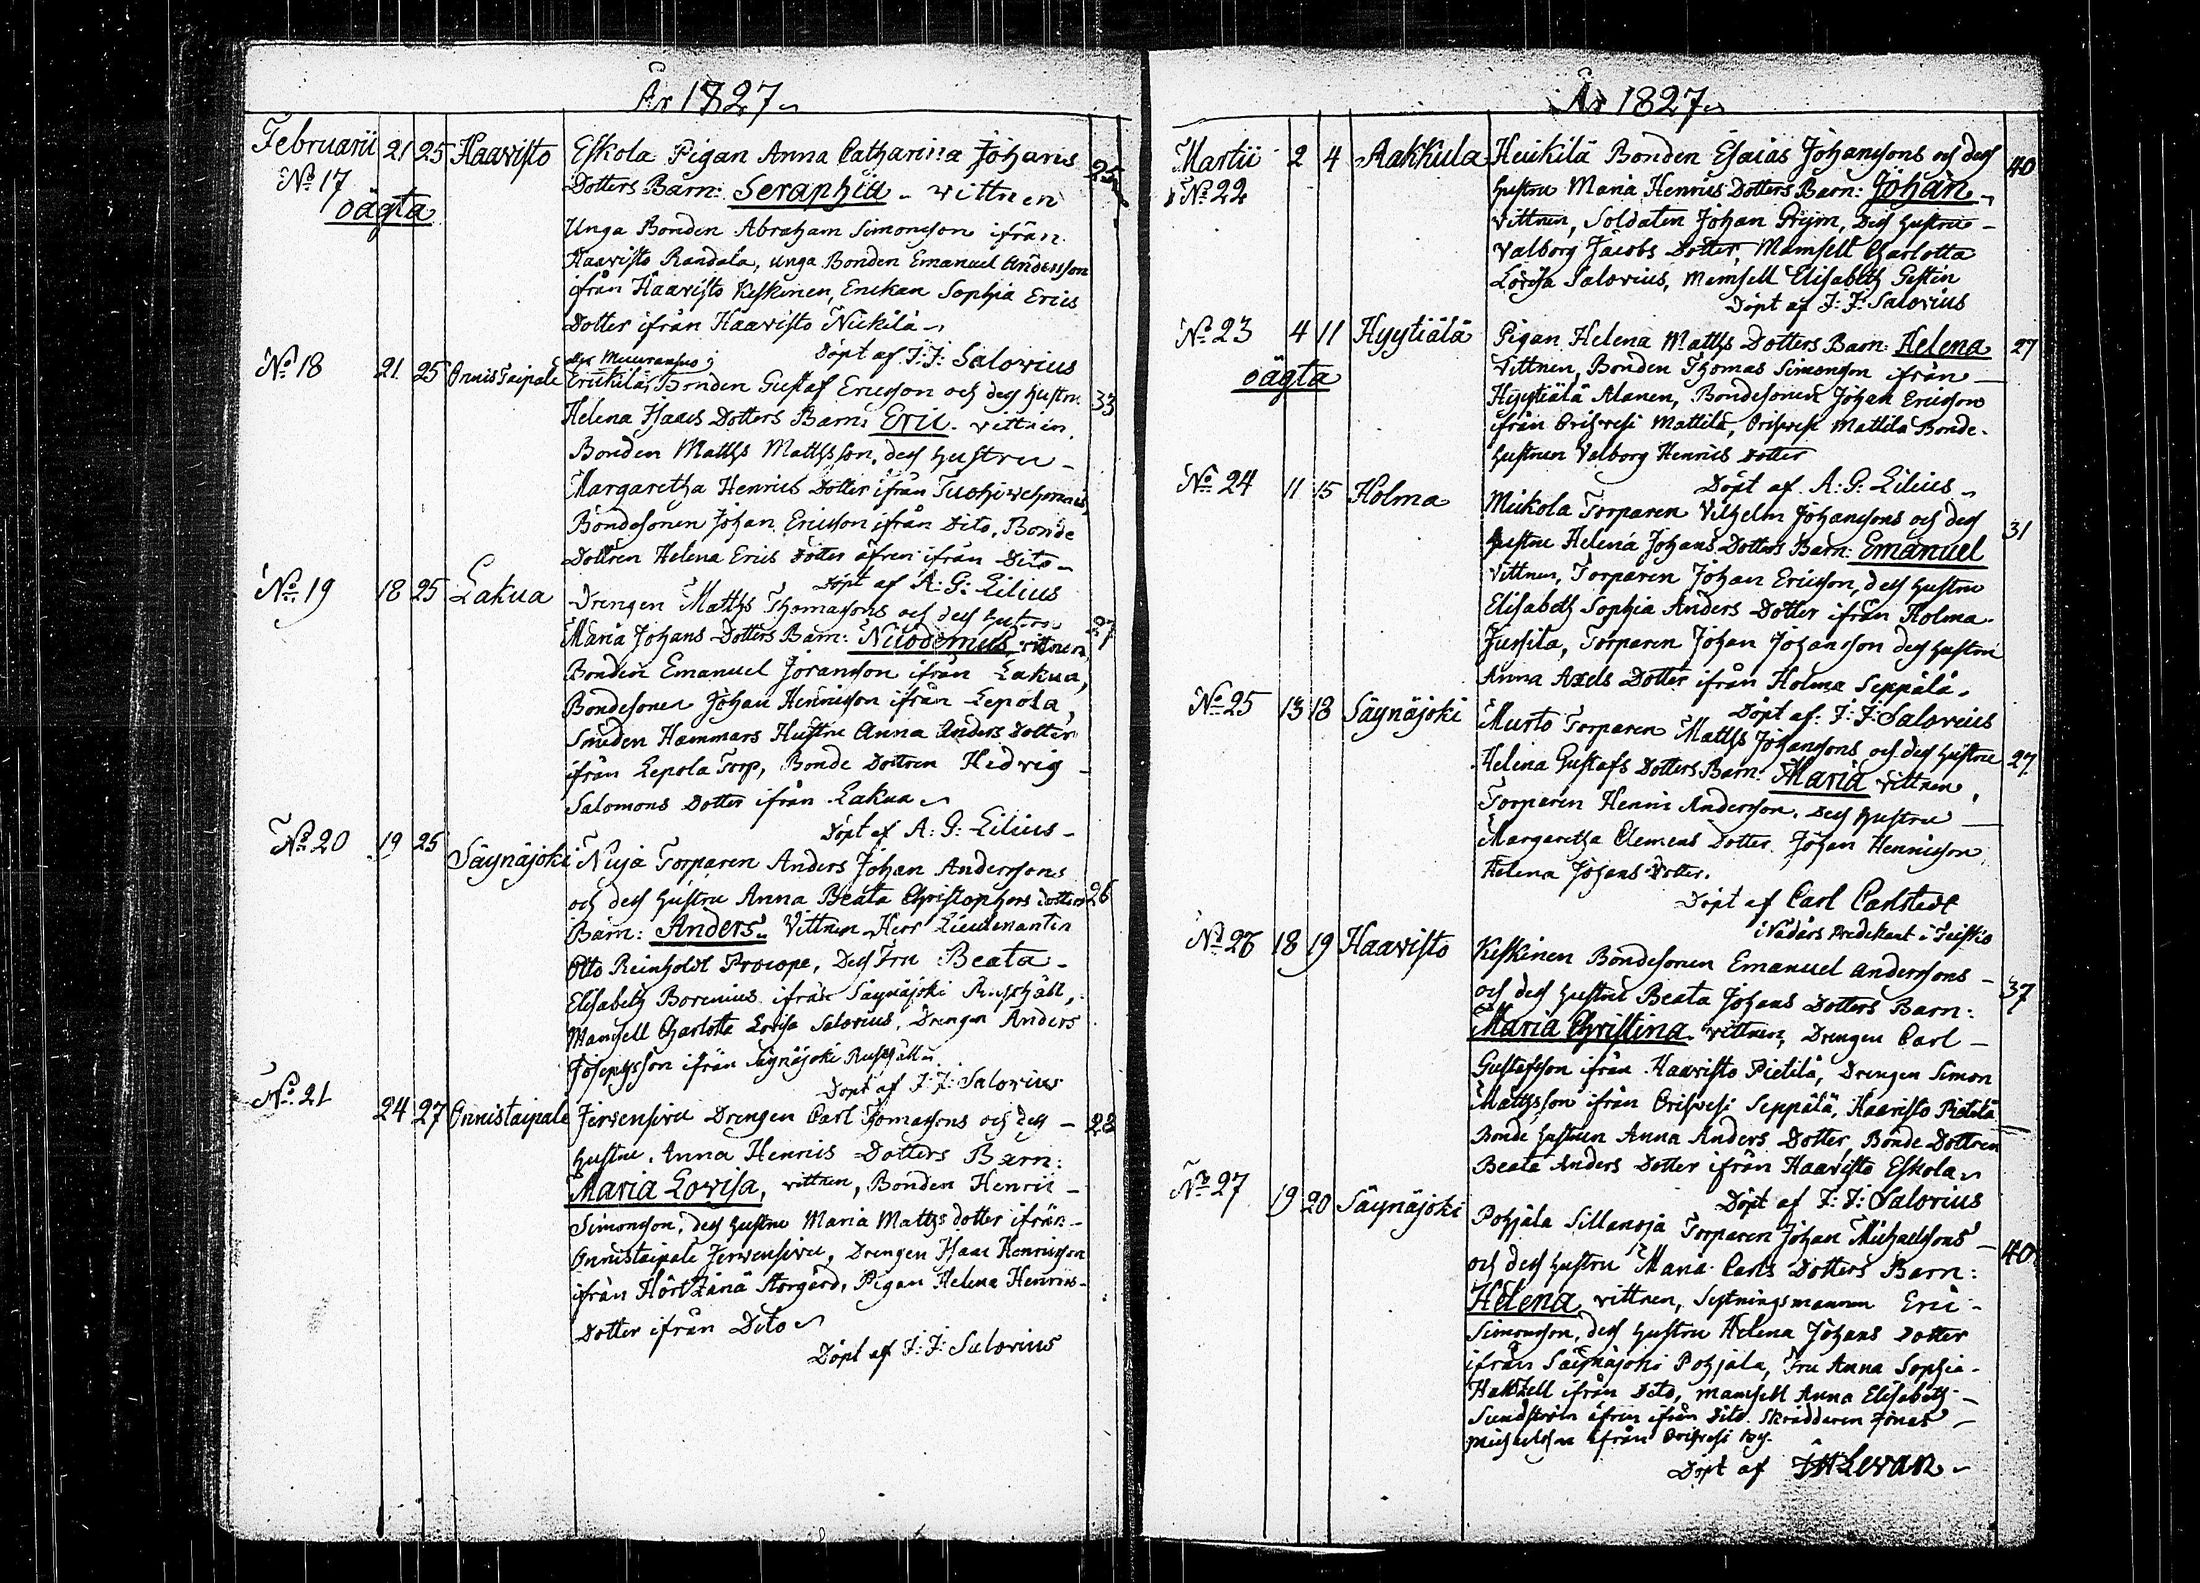 År 1827
Februarii 21 25 Haavisto Eskola Pigan Anna Catharina Johans 25
No 17 Dotters Barn: Seraphia - vittnen
oägta
Unga Bonden Abraham Simonsson ifrån
Haavisto Randala, unga Bonden Emanuel Andersson
ifrån Haavisto Keskinen, Enckan Sophia Erics
Dotter ifrån Haavisto Nickilä
Döpt af J: J: Salovius
No 18 21 25 Onnistaipale Erickilä Bonden Gustaf Ericsson och dess hustru 33
Helena Isaacs Dotters Barn: Eric. vittnen
Bonden Matths Mattsson, dess hustru -
Margaretha Henrics Dotter ifrån
Bondesonen Johan Ericsson ifrån Dito, Bonde
Dottren Helena Erics Dotter äfven ifrån Dito -
Döpt af A: G: Lilius
No 19 18 25 Lakua Drengen Matths Thomassons och dess hustru
Maria Johans Dotters Barn: Nicodemus, vittnen, 27
Bonden Emanuel Joransson ifrån Lakua,
Bondesonen Johan Henricsson ifrån Lepola,
Smeden Hammars Hustru Anna Anders Dotter
ifrån Lepola Torp, Bonde Dottren Hedvig -
Salomons Dotter ifrån Lakua
Döpt af A: G: Lilius -
No 20 19 25 Säynäjoki Nuja Torparen Anders Johan Anderssons
och dess hustru Anna Beata Christophers Dotters 26
Barn: Anders. Vittnen Herr Lieutenanten
Otto Reinholdt Procope, Dess Fru Beata -
Elisabeth Borenius ifrån Säynäjoki Rusthåll,
Mamsell Charlotta Lovisa Salovius, Drengen Anders
Josephsson ifrån Säynäjoki Rusthåll
Döpt af J: J: Salovius
No 21 24 27 Onnistaipale Jervensivu Drengen Carl Thomassons och dess - 28
hustru Anna Henrics Dotters Barn:
Maria Lovisa, vittnen, Bonden Henric -
Simonsson, dess hustru Maria Matths dotter ifrån -
Onnistaipale Jervensivu, Drengen Isaac Henricsson
ifrån Storgård, Pigan Helena Henrics -
Dotter ifrån Dito
Döpt af J: J: Salovius
År 1827
Martii 2 4 Aakkula Heickilä Bonden Esaias Johanssons och dess 40
No 22 hustru Maria Henrics Dotters Barn: Johan
vittnen, Soldaten Johan Prijm, Dess hustru -
Valborg Jacobs Dotter, Mamsell Charlotta
Lovisa Salovius, Mamsell Elisabeth Gestin
Döpt af J: J: Salovius
No 23 4 11 Hyytiälä Pigan Helena Matths Dotters Barn: Helena 27
oägta Vittnen, Bonden Thomas Simonsson ifrån -
Hyytiälä Alanen, Bondesonen Johan Ericsson
ifrån Orihvesi Mattila, Orihvesi Mattila Bonde -
hustrun Valborg Henrics Dotter
Döpt af A: G: Lilius
No 24 11 15 Holma Mickola Torparen Vilhelm Johanssons och dess 31
hustru Helena Johans Dotters Barn: Emanuel
Vittnen, Torparen Johan Ericsson, dess hustru
Elisabeth Sophia Anders Dotter ifrån Holma -
Jussila, Torparen Johan Johansson dess hustru
Anna Axels Dotter ifrån Holma Seppälä.
Döpt af: J: J: Salovius
No 25 13 18 Säynäjoki Musto Torparen Matths Johanssons och dess hustru 27
Helena Gustafs Dotters Barn: Maria vittnen,
Torparen Henric Andersson, Dess hustru -
Margaretha Clemens Dotter Johan Henricsson
Helena Johans Dotter.
Döpt af Carl Carlstedt
i Nådårs Predikant i Teisko
No 26 18 19 Haavisto Keskinen Bondesonen Emanuel Anderssons -
och dess hustru Beata Johans Dotters Barn: 37
Maria Christina vittnen, Drengen Carl -
Gustafsson ifrån Haavisto Pietilä, Drengen Simon
Mattsson ifrån Orihvesi Seppälä, Haavisto Pietilä
Bonde hustrun Anna Anders Dotter, Bonde Dottren
Beata Anders Dotter ifrån Haavisto Eskola
Döpt af J: J: Salovius
No 27 19 20 Säynäjoki Pohjala Sillanoja Torparen Johan Michaelssons - 40
och dess hustru Maria Carls Dotters Barn:
Helena, vittnen, Sytningsmannen Eric -
Simonsson, dess hustru Helena Johans Dotter
ifrån Säynäjoki Pohjala, Fru Anna Sophia -
ifrån Dito, Mamsell Anna Elisabeth -
Sundström äfven ifrån Dito. Skräddaren Jonas -
Michaelsson ifrån Orihvesi by.
Döpt af Levan